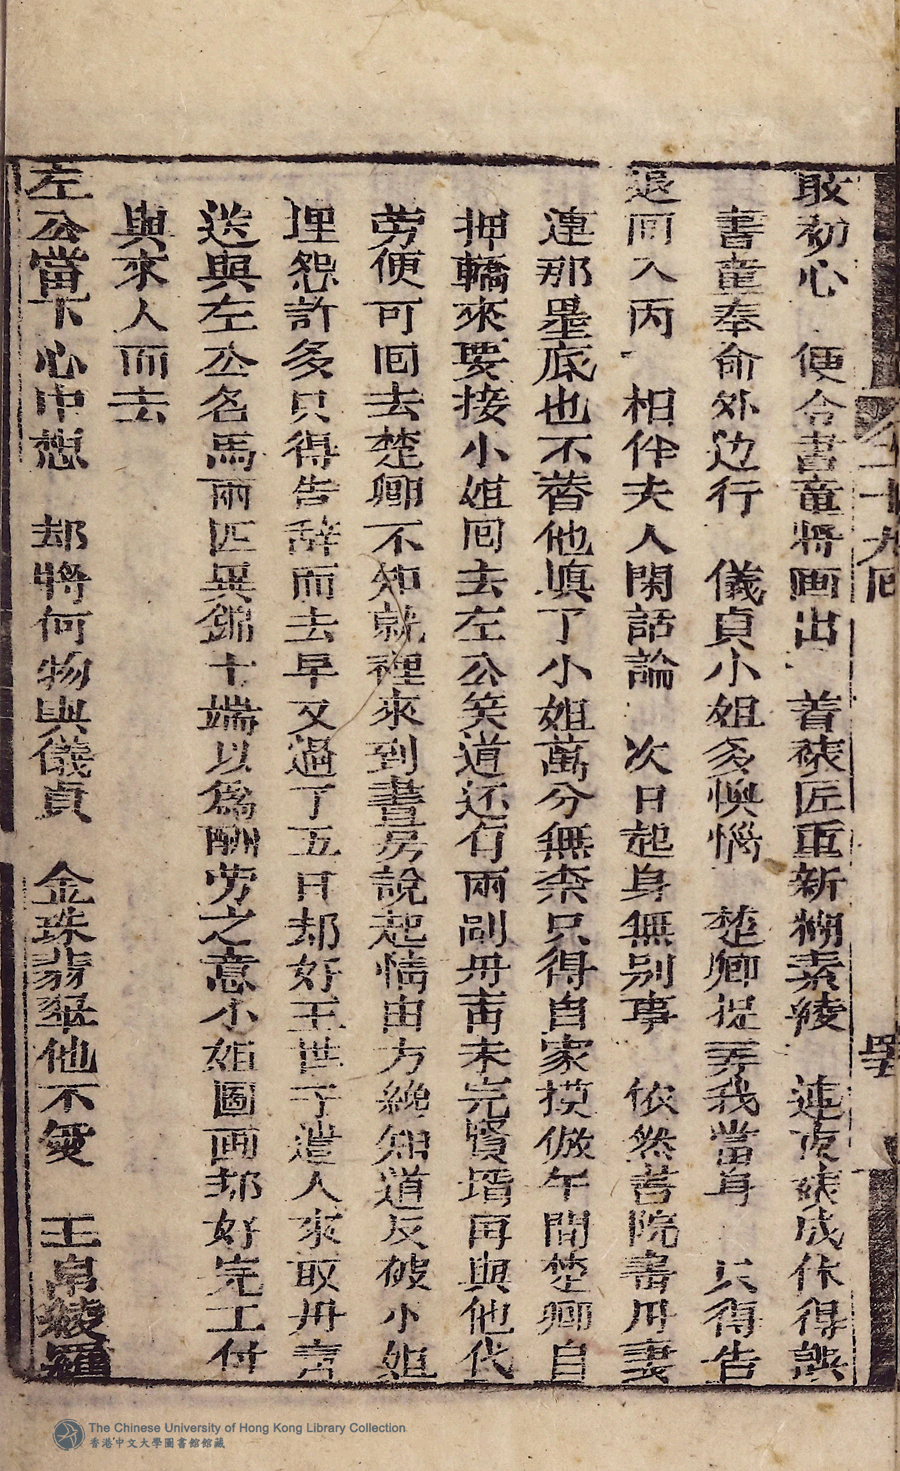 敢初心　便令書童將画出　着裱匠重新棚素綾　連夜裱成休得誤
書童奉命外边行　儀貞小姐多懊惱　楚卿捉弄我當身　只得告
退囬入內　相伴夫人閑話論　次日起身無別事　依然書院書丹青
連那墨底也不替他填了小姐萬分無柰只得自家摸倣午間楚卿自
押轎來要接小姐囬去左公笑道还有兩副丹青未完賢壻再與他代
劳便可囬去楚卿不知就裡來到書房說起情由方纔知道反被小姐
埋怨許多只得告辞而去早又過了五日却好王世子遣人來取丹青
送與左公名馬兩匹異錦十端以為酬劳之意小姐圖画却好完工付
與來人而去
左公當下心中想　却將何物與儀貞　金珠翡翠他不愛　玉帛綾羅
二十九囬